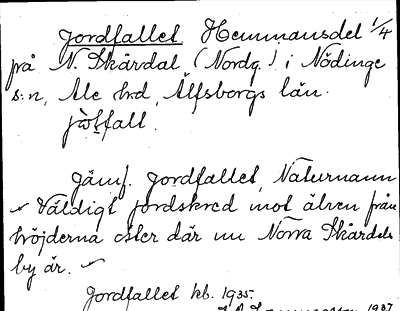 Jordfallet Hemmansdel 1/4
på N. Skårdal (Nordg.) i Nödinge
s:n, Ale hd, Älfsborgs län.
Jämf. Jordfallet, Naturnamn
Väldigt jordskred mot älven från
höjderna öster där nu Norra Skårdals
by är.
Jordfallet kb. 1935.
1937